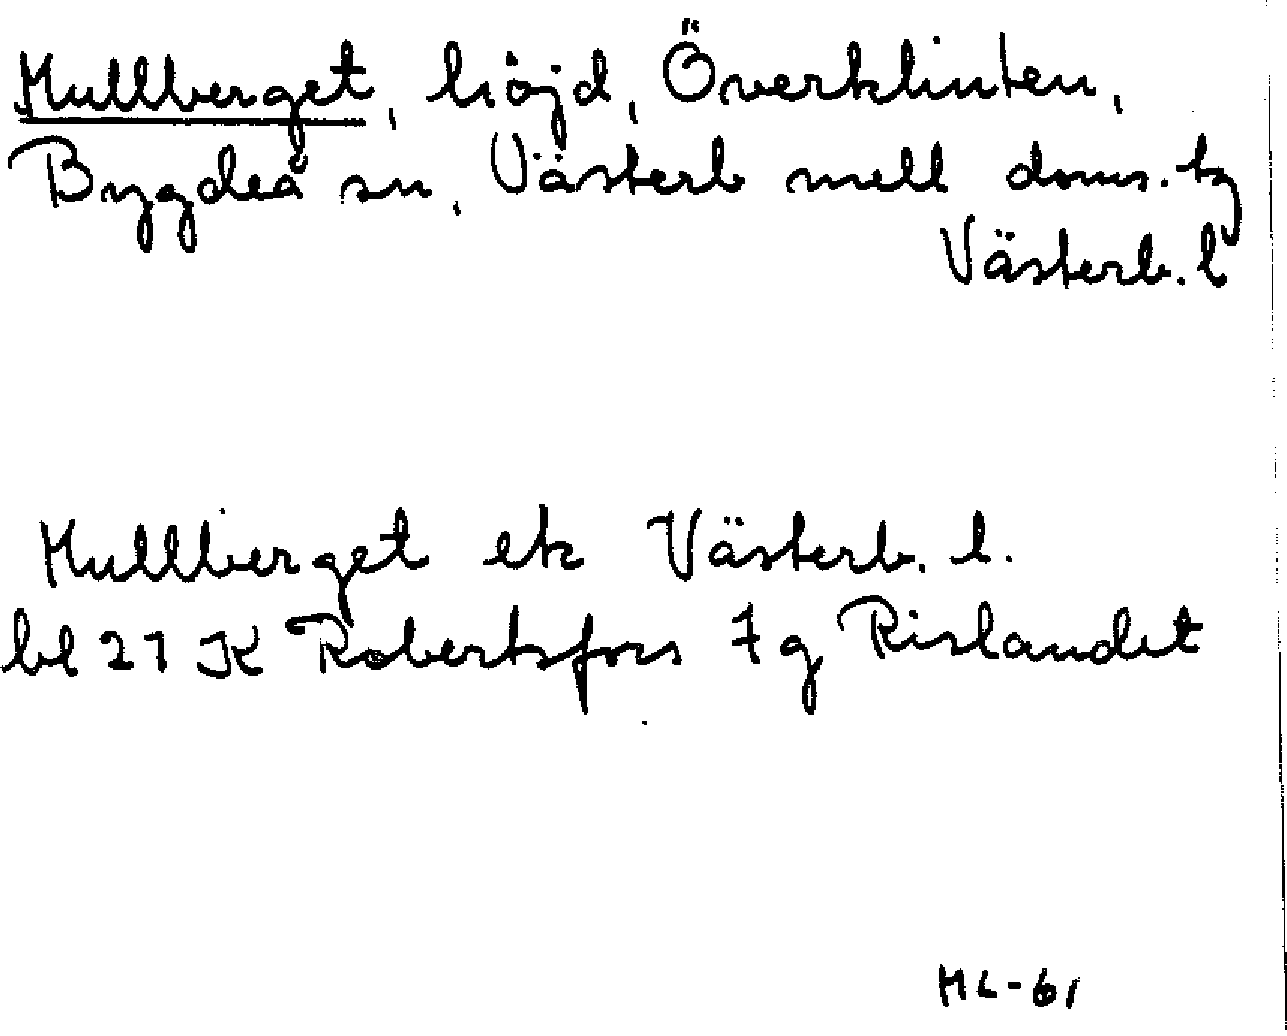 Mullberget, höjd, Överklinten,
Bygdeå sn, Västerb mell doms. tg
Västerb. l
Mullberget ek Västerb. l.
bl 21 K Robertsfors 7 g Rislandet
ML-61